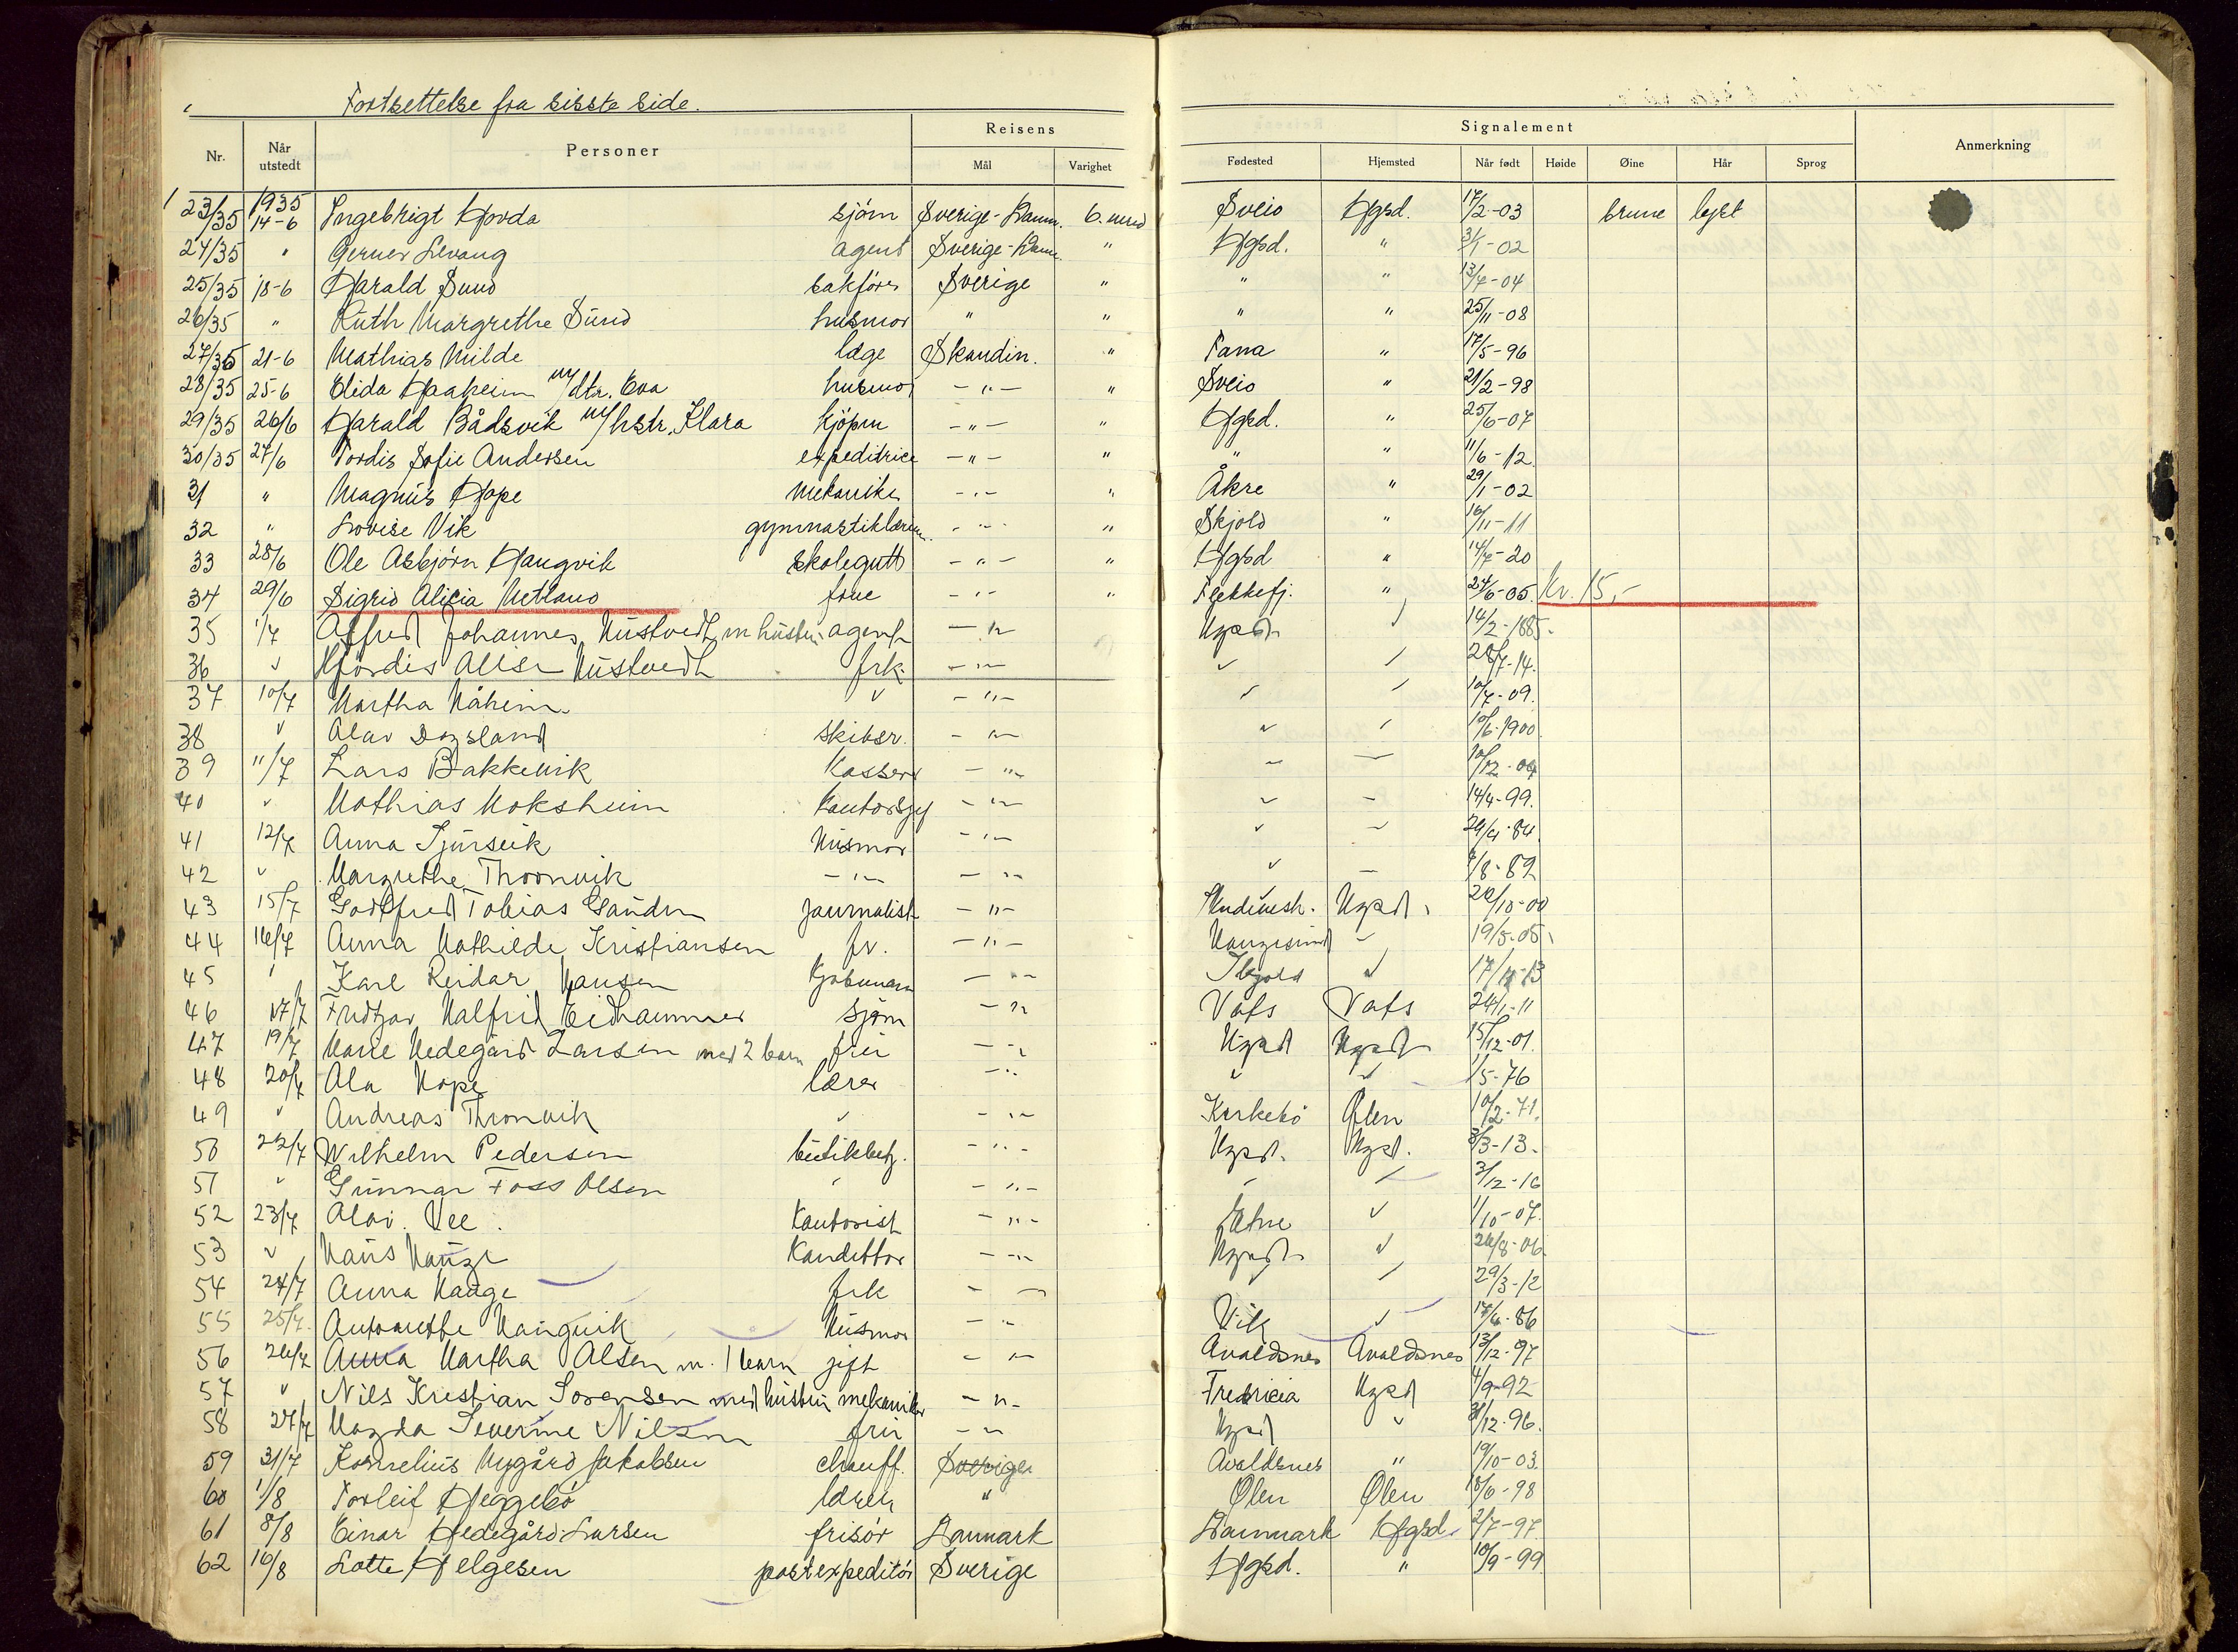 Fortsettelse fra sisste side.
Nr. Når utstedt Personer Reisens Mål Varighet Signalement Fødested Hjemsted Når født Høide Øine Hår Sprog Anmerkning
1935
23/35 14-6 Ingebrigt Hovda sjøm Sverige-Danm. 6. mnd Sveio Hgsd. 17/2-03 brune lyst
24/35 " Gerner Levang agent Sverige-Danm. " Hgsd. " 3/1-02
25/35 18-6 Harald Sund sakfører Sverige " " " 13/7-04
26/35 " Ruth Margrethe Sund husmor " " " " 25/11-08
27/35 21-6 Mathias Milde læge Skandin. " Fana " 17/5-96
28/35 25-6 Elida Haaheim m/dtr. Eva husmor -"- " Sveio " 21/2-98
29/35 26/6 Harald Bådsvik m/hstr. Klara kjöpm -"- " Hgsd. " 25/6-07
30/35 27/6 Tordis Sofie Andersen expeditrice -"- " " " 11/6-12
31 " Magnus Hope mekaniker -"- " Åkre " 29/1-02
32 " Lovise Vik -"- " Skjold " 16/11-11
33 28/6 Ole Asbjörn Haugvik skolegutt -"- " Hgsd " 14/7-20
34 29/6 Sigrid Alicia Metland frue -"- " Flekkefj. " 24/6-05. Kr. 15,-
35 1/7 Alfred Johannes Nustvedt m hustru agent -"- Hgsd " 14/2-1885.
36 " Hjördis Alise Nustvedt frk. -"- " " 28/7-14.
37 10/7 Martha Håheim " -"- " " 10/7-09.
38 " Olav Dagsland skibsr. -"- " " 10/6-1900
39 11/7 Lars Bakkevik Kasserer -"- " " 10/12-09
40 " Mathias Moksheim -"- " " 14/4-99.
41 12/7 Anna Sjurseik Husmor -"- " " 29/4-84.
42 " Margrethe Thronvik -"- -"- " " /8-82
43 15/7 Gottfred Tobias Gauden journalist -"- Hgsd. 20/10-00
44 16/7 Anna Mathilde Kristiansen fr. -"- Haugesund " 19/5-05
45 " Karl Reidar Hansen Kjøbmann -"- Skjold "
46 17/7 Fridtjov Halfrid Eidhammer sjøm -"- Vats Vats 24/1-11
47 19/7 Marie Hedegård Larsen med 2 barn fru -"- Hgsd Hgsd 15/12-01.
48 20/7 Ola Hope lærer -"- " " 1/5-76
49 " Andreas Thronvik " -"- Kirkebö Ølen 10/2-71.
50 22/7 Wilhelm Pedersen butikbetj. -"- Hgsd. Hgsd. 3/3-13.
51 " Gunnar Foss Olsen " -"- " " 3/12-16
52 23/7 Olav. Vee. Kontorist -"- Etne " 1/10-07.
53 " Hans Hauge Kanditor -"- Hgsd " 26/8-06.
54 24/7 Anna Hauge frk -"- " " 29/3-12
55 25/7. Antonette Haugvik Husmor -"- Vik " 17/6-86
56 26/7 Anna Martha Olsen m. 1 barn gift -"- Avaldsnes Avaldsnes 13/12-97
57 " Nils Kristian Sørensen med hustru mekaniker -"- Fredricia Hgsd 4/9-92
58 27/7 Magda Severine Nilsen fru -"- Hgsd " 31/12-96.
59 31/7 Kornelius Nygård Jakobsen chauff. Sverige Avaldsnes " 19/10-03.
60 1/8 Torleif Heggebö lærer " Ølen Ølen 18/6-98
61 8/8 Einar Hedegård-Larsen frisör Danmark Danmark Hgsd. 2/7-97.
62 16/8 Lotte Helgesen postexpeditör Sverige Hgsd. " 10/9-99.